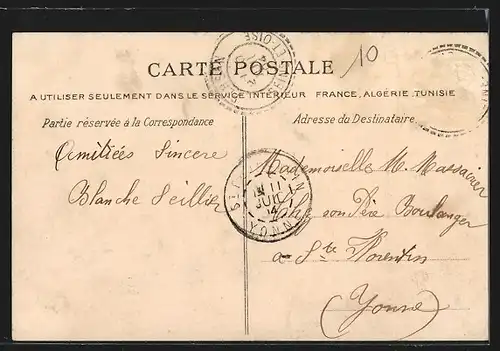 10
CARTE POSTALE
A UTILISER SEULEMENT DANS LE SERVICE INTÉRIEUR FRANCE, ALGÉRIE TUNISIE
Partie réservée à la Correspondance
Adresse du Destinataire
Amitiées Sincere
Blanche Seillier
Mademoiselle M.
chez son Père Boulanger
a Ste Florentin
(Yonne)
ET-OISE
11
JUIL
04
YONNE